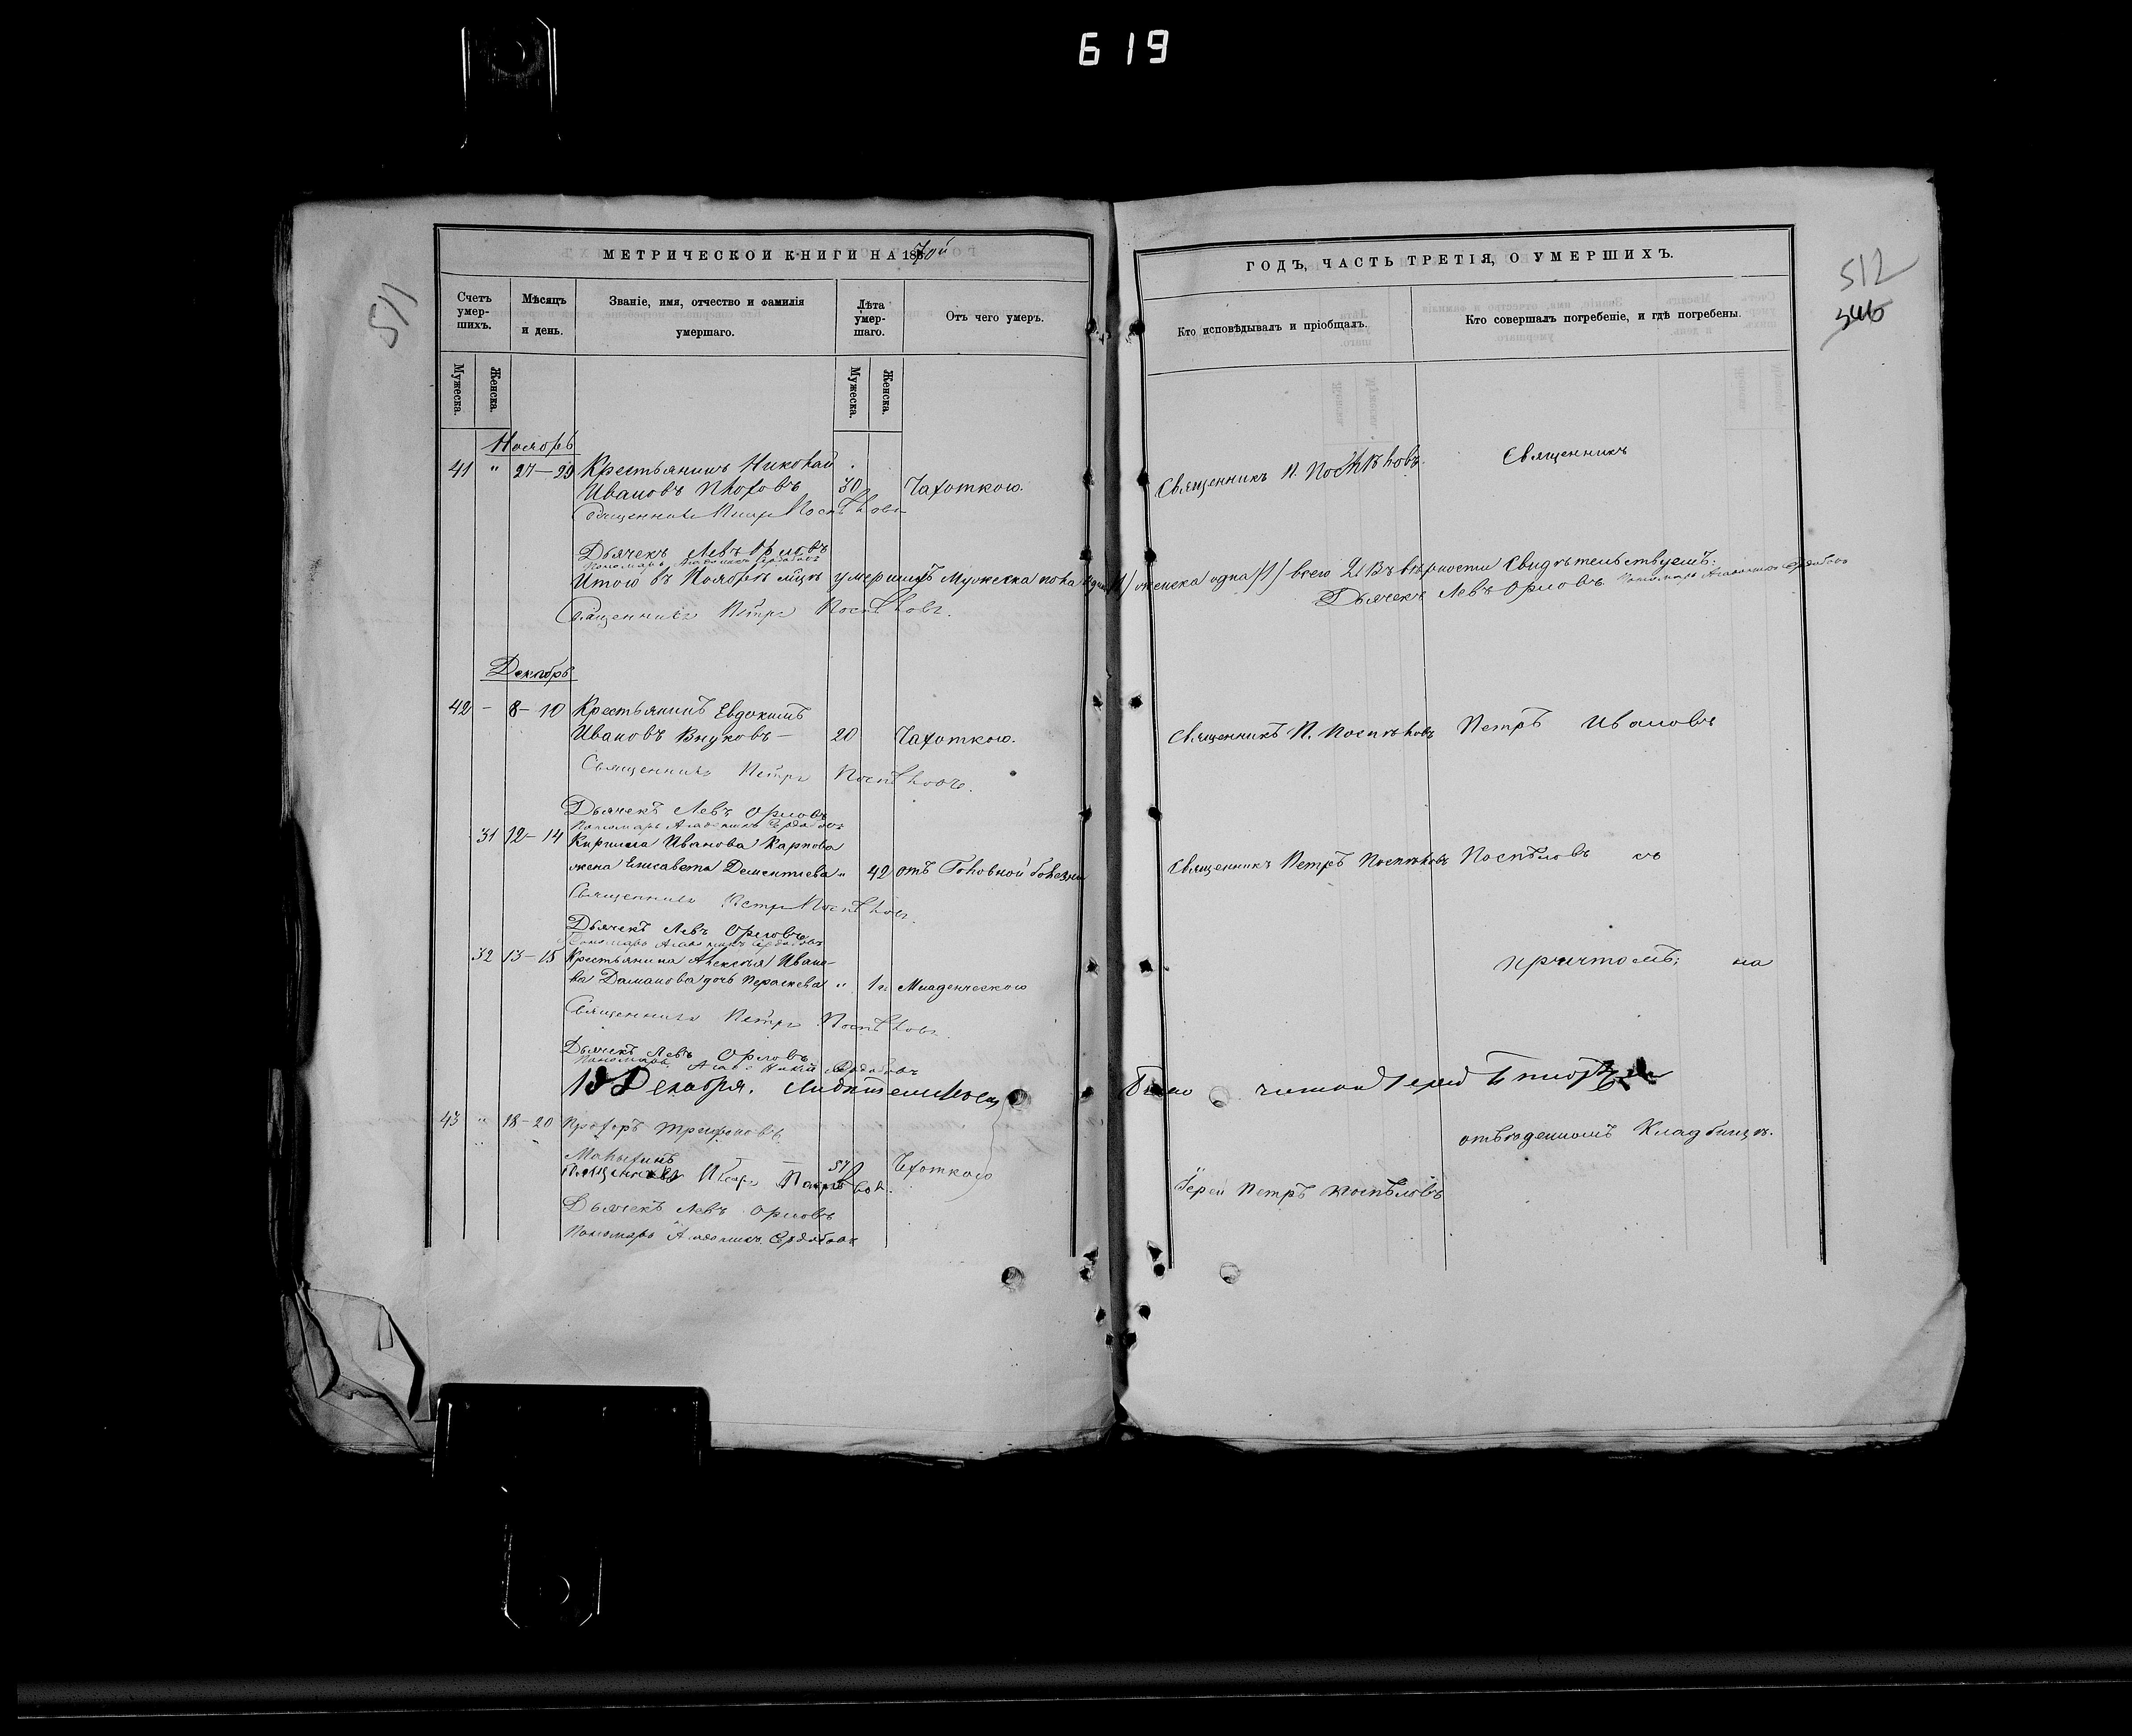 619
МЕТРИЧЕСКОЙ КНИГИ НА 1870й
ГОДЪ, ЧАСТЬ ТРЕТІЯ, О УМЕРШИХЪ.
511
512
346
Счетъ умер-шихъ.
Мѣсяцъ и день.
Званіе, имя, отчество и фамилія умершаго.
Лѣта умер-шаго.
Отъ чего умеръ.
Кто исповѣдывалъ и пріобщалъ.
Кто совершалъ погребеніе, и гдѣ погребены.
Мужеска.
Женска.
Мужеска.
Женска.
Ноябрь
41 " 27-29 Крестьянинъ Николай
Ивановъ 30 Чахоткою. Священникъ П. Поспѣловъ. Священникъ
Священникъ Петръ Поспѣловъ
Дьячекъ Левъ Орловъ
Пономарь
Итого въ Ноябрѣ мцѣ умершихъ Мужеска пола одинъ /1/ женска одна /1/ всего 2. Въ вѣрности свидѣтельствуемъ:
Священникъ Петръ Поспѣловъ. Дьячекъ Левъ Орловъ Пономарь
Декабрь
42 - 8-10 Крестьянинъ Евдокимъ
Ивановъ Внуковъ- 20 Чахоткою. Священникъ П. Поспѣловъ Петръ Ивановъ
Священникъ Петръ Поспѣловъ.
Дьячекъ Левъ Орловъ
Пономарь
31 12-14 Кирилла Иванова Карпова
жена Елисавета Дементиева " 42 отъ Головной болезни Священникъ Петръ Поспѣловъ Поспѣловъ съ
Священникъ Петръ Поспѣловъ.
Дьячекъ Левъ Орловъ
Пономарь
32 13-15 Крестьянина Алексѣя Ивано-
ва дочь Параскева " 1 г. Младенческою причтомъ; на
Священникъ Петръ Поспѣловъ
Дьячекъ Левъ Орловъ
Пономарь
Декабря.
43 " 18-20 Прохоръ Трифоновъ отведенномъ Кладбищѣ.
57 Чахоткою
Іерей Петръ Поспѣловъ
Дьячекъ Левъ Орловъ
Пономарь